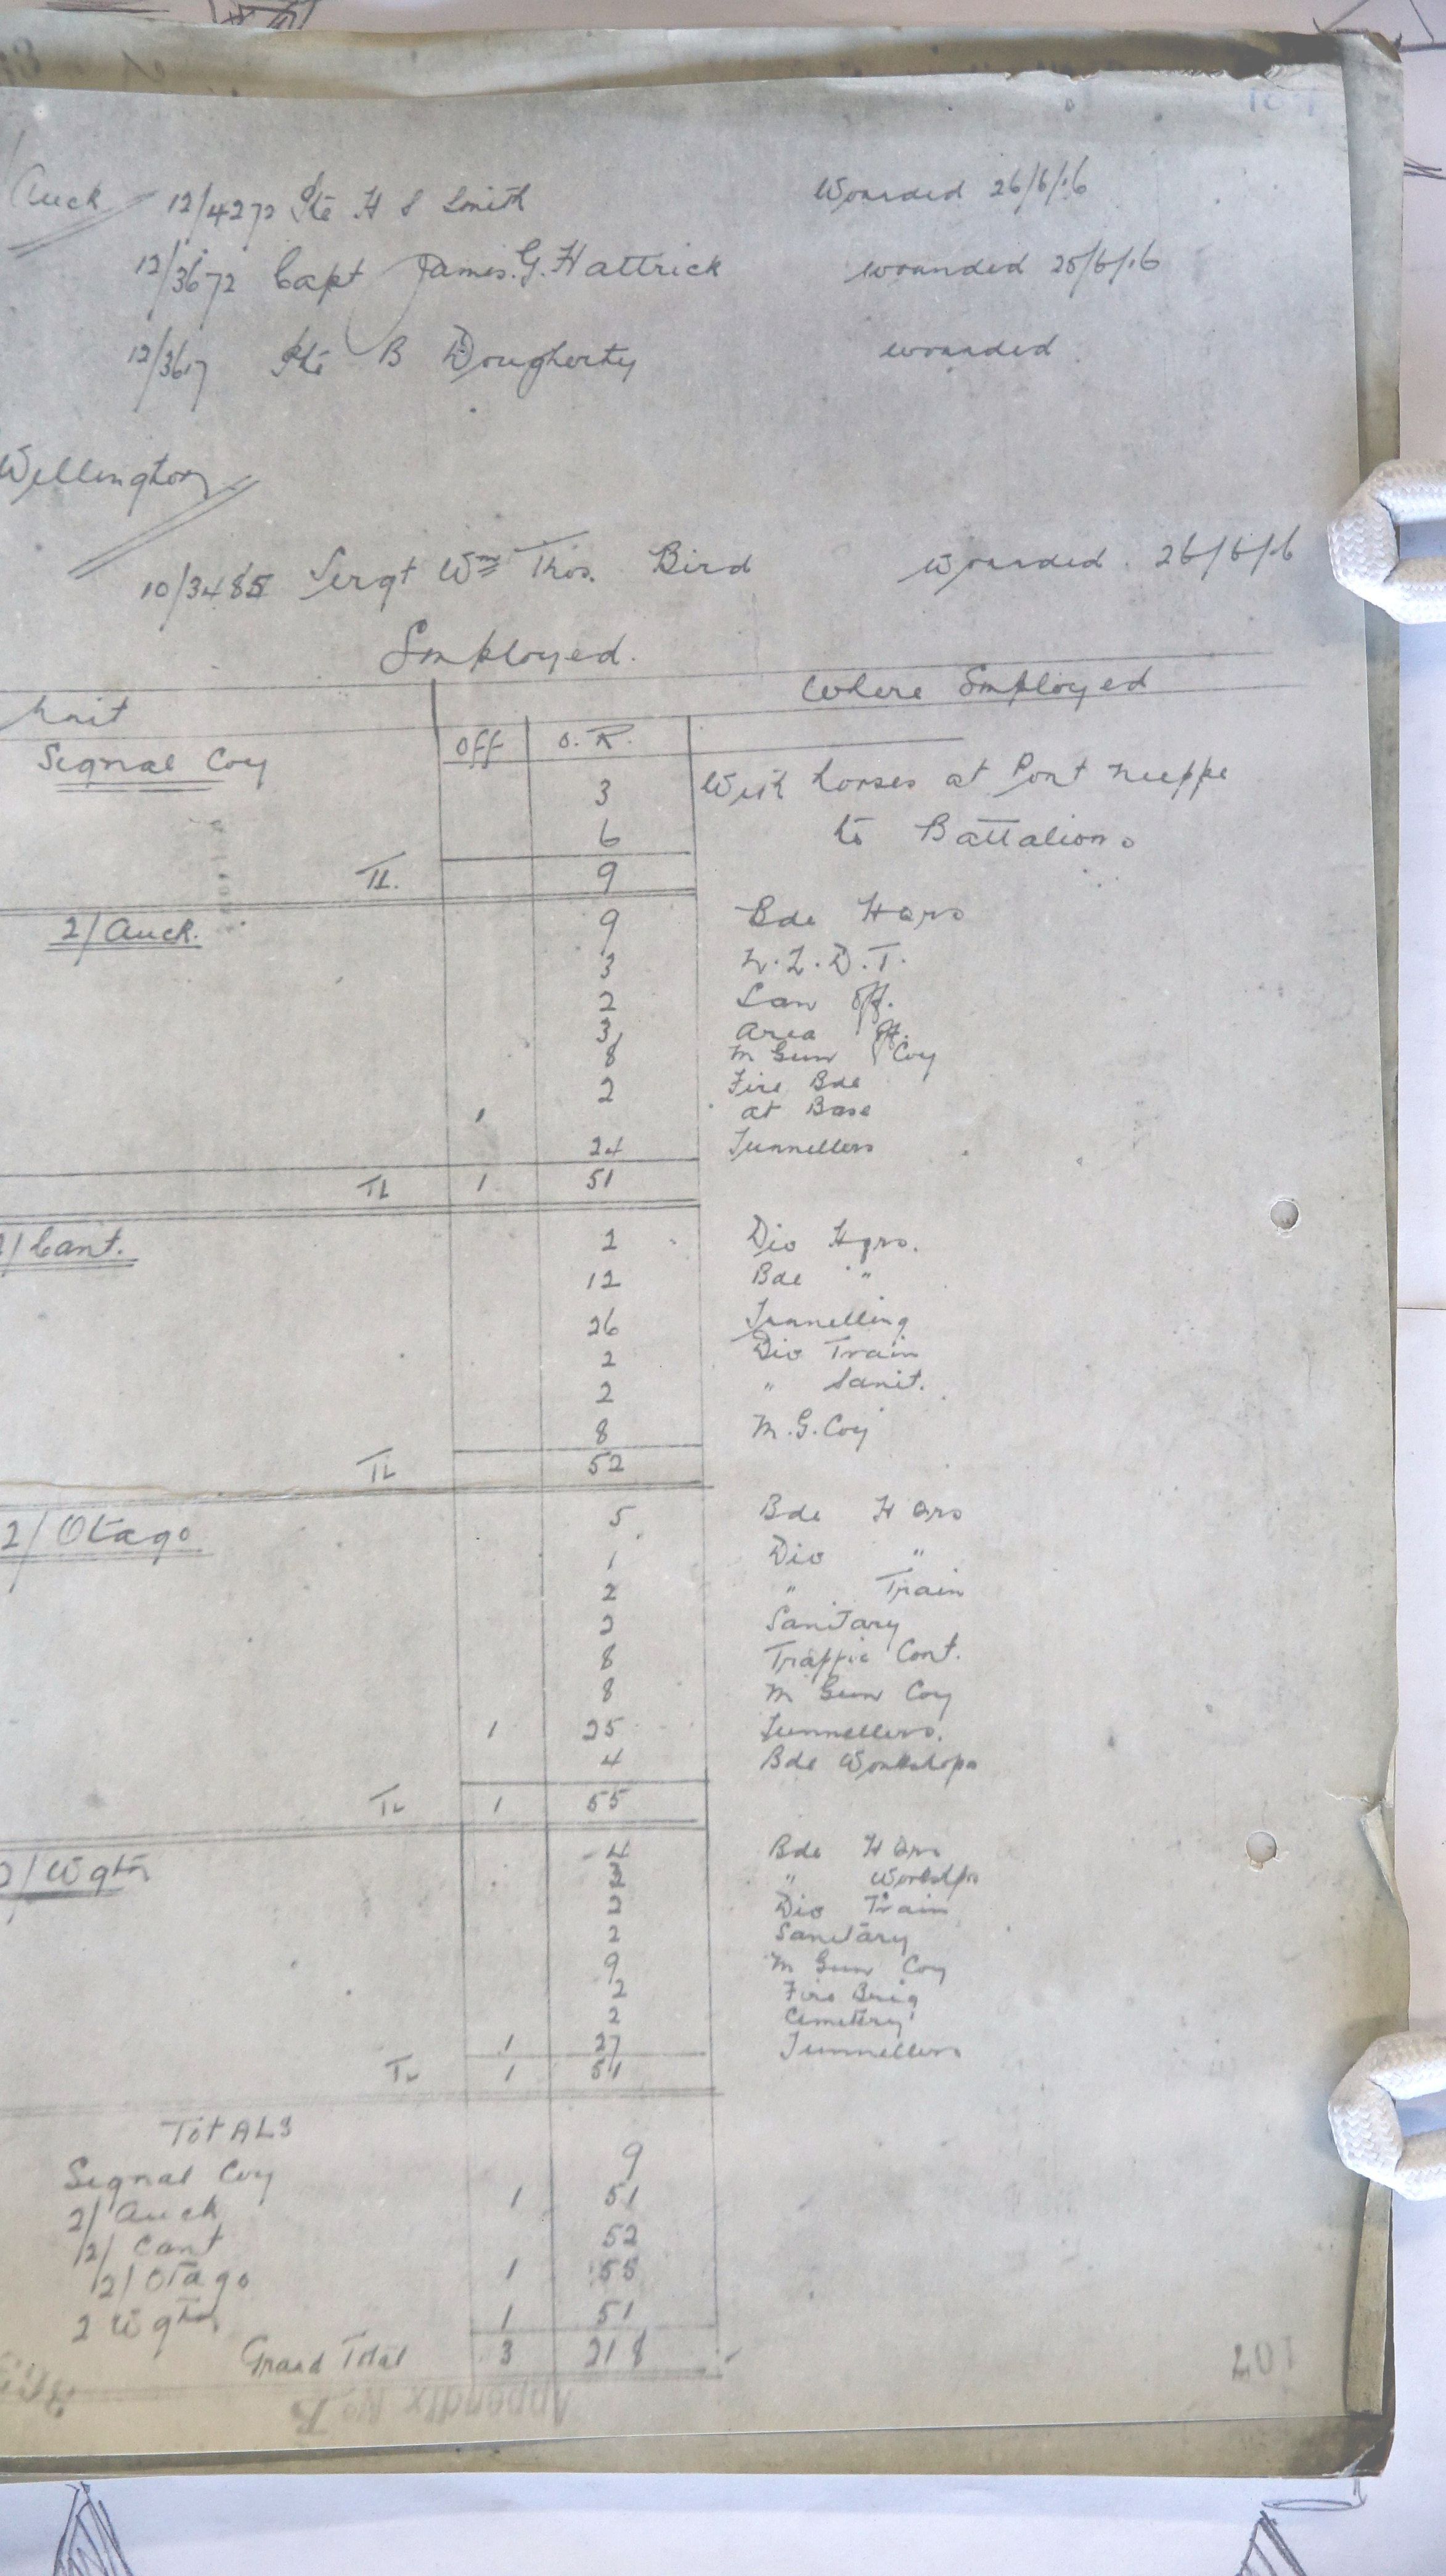 Auck 12/4272 Pte H S Smith Wounded 26/6/16
12/3672 Capt James. G. Hattrick wounded 25/6/16
12/3617 Pte B Dougherty wounded
Wellington
10/3485 Sergt Wm Thos. Bird Wounded. 26/6/16
Employed.
Unit Where Employed
Off O.R.
Signal Coy
3 With horses at Pont Nieppe
6 to Battalions
TL. 9
2/Auck. 9 Bde Hqrs
3 N.Z.D.T.
2 San Off.
3 Area Off.
8 M Gun Coy
2 Fire Bde
1 at Base
24 Tunnellers
TL 1 51
2/Cant. 2 Div Hqrs.
12 Bde "
26 Tunnelling
2 Div Train
2 " Sanit.
8 M.G. Coy
TL 52
2/Otago 5 Bde H Qrs
1 Div "
2 " Train
2 Sanitary
8 Traffic Cont.
8 M Gun Coy
1 25 Tunnellers.
4 Bde Workshops
TL 1 55
2/Wgtn 4 Bde H Qrs
3 " Workshops
2 Div Train
2 Sanitary
9 M Gun Coy
2 Fire Brig
2 Cemetery
1 27 Tunnellers
TL 1 51
TOTALS
Signal Coy 9
2/Auck 1 51
2/Cant 52
2/Otago 1 55
2 Wgtn 1 51
Grand Total 3 218
Appendix No